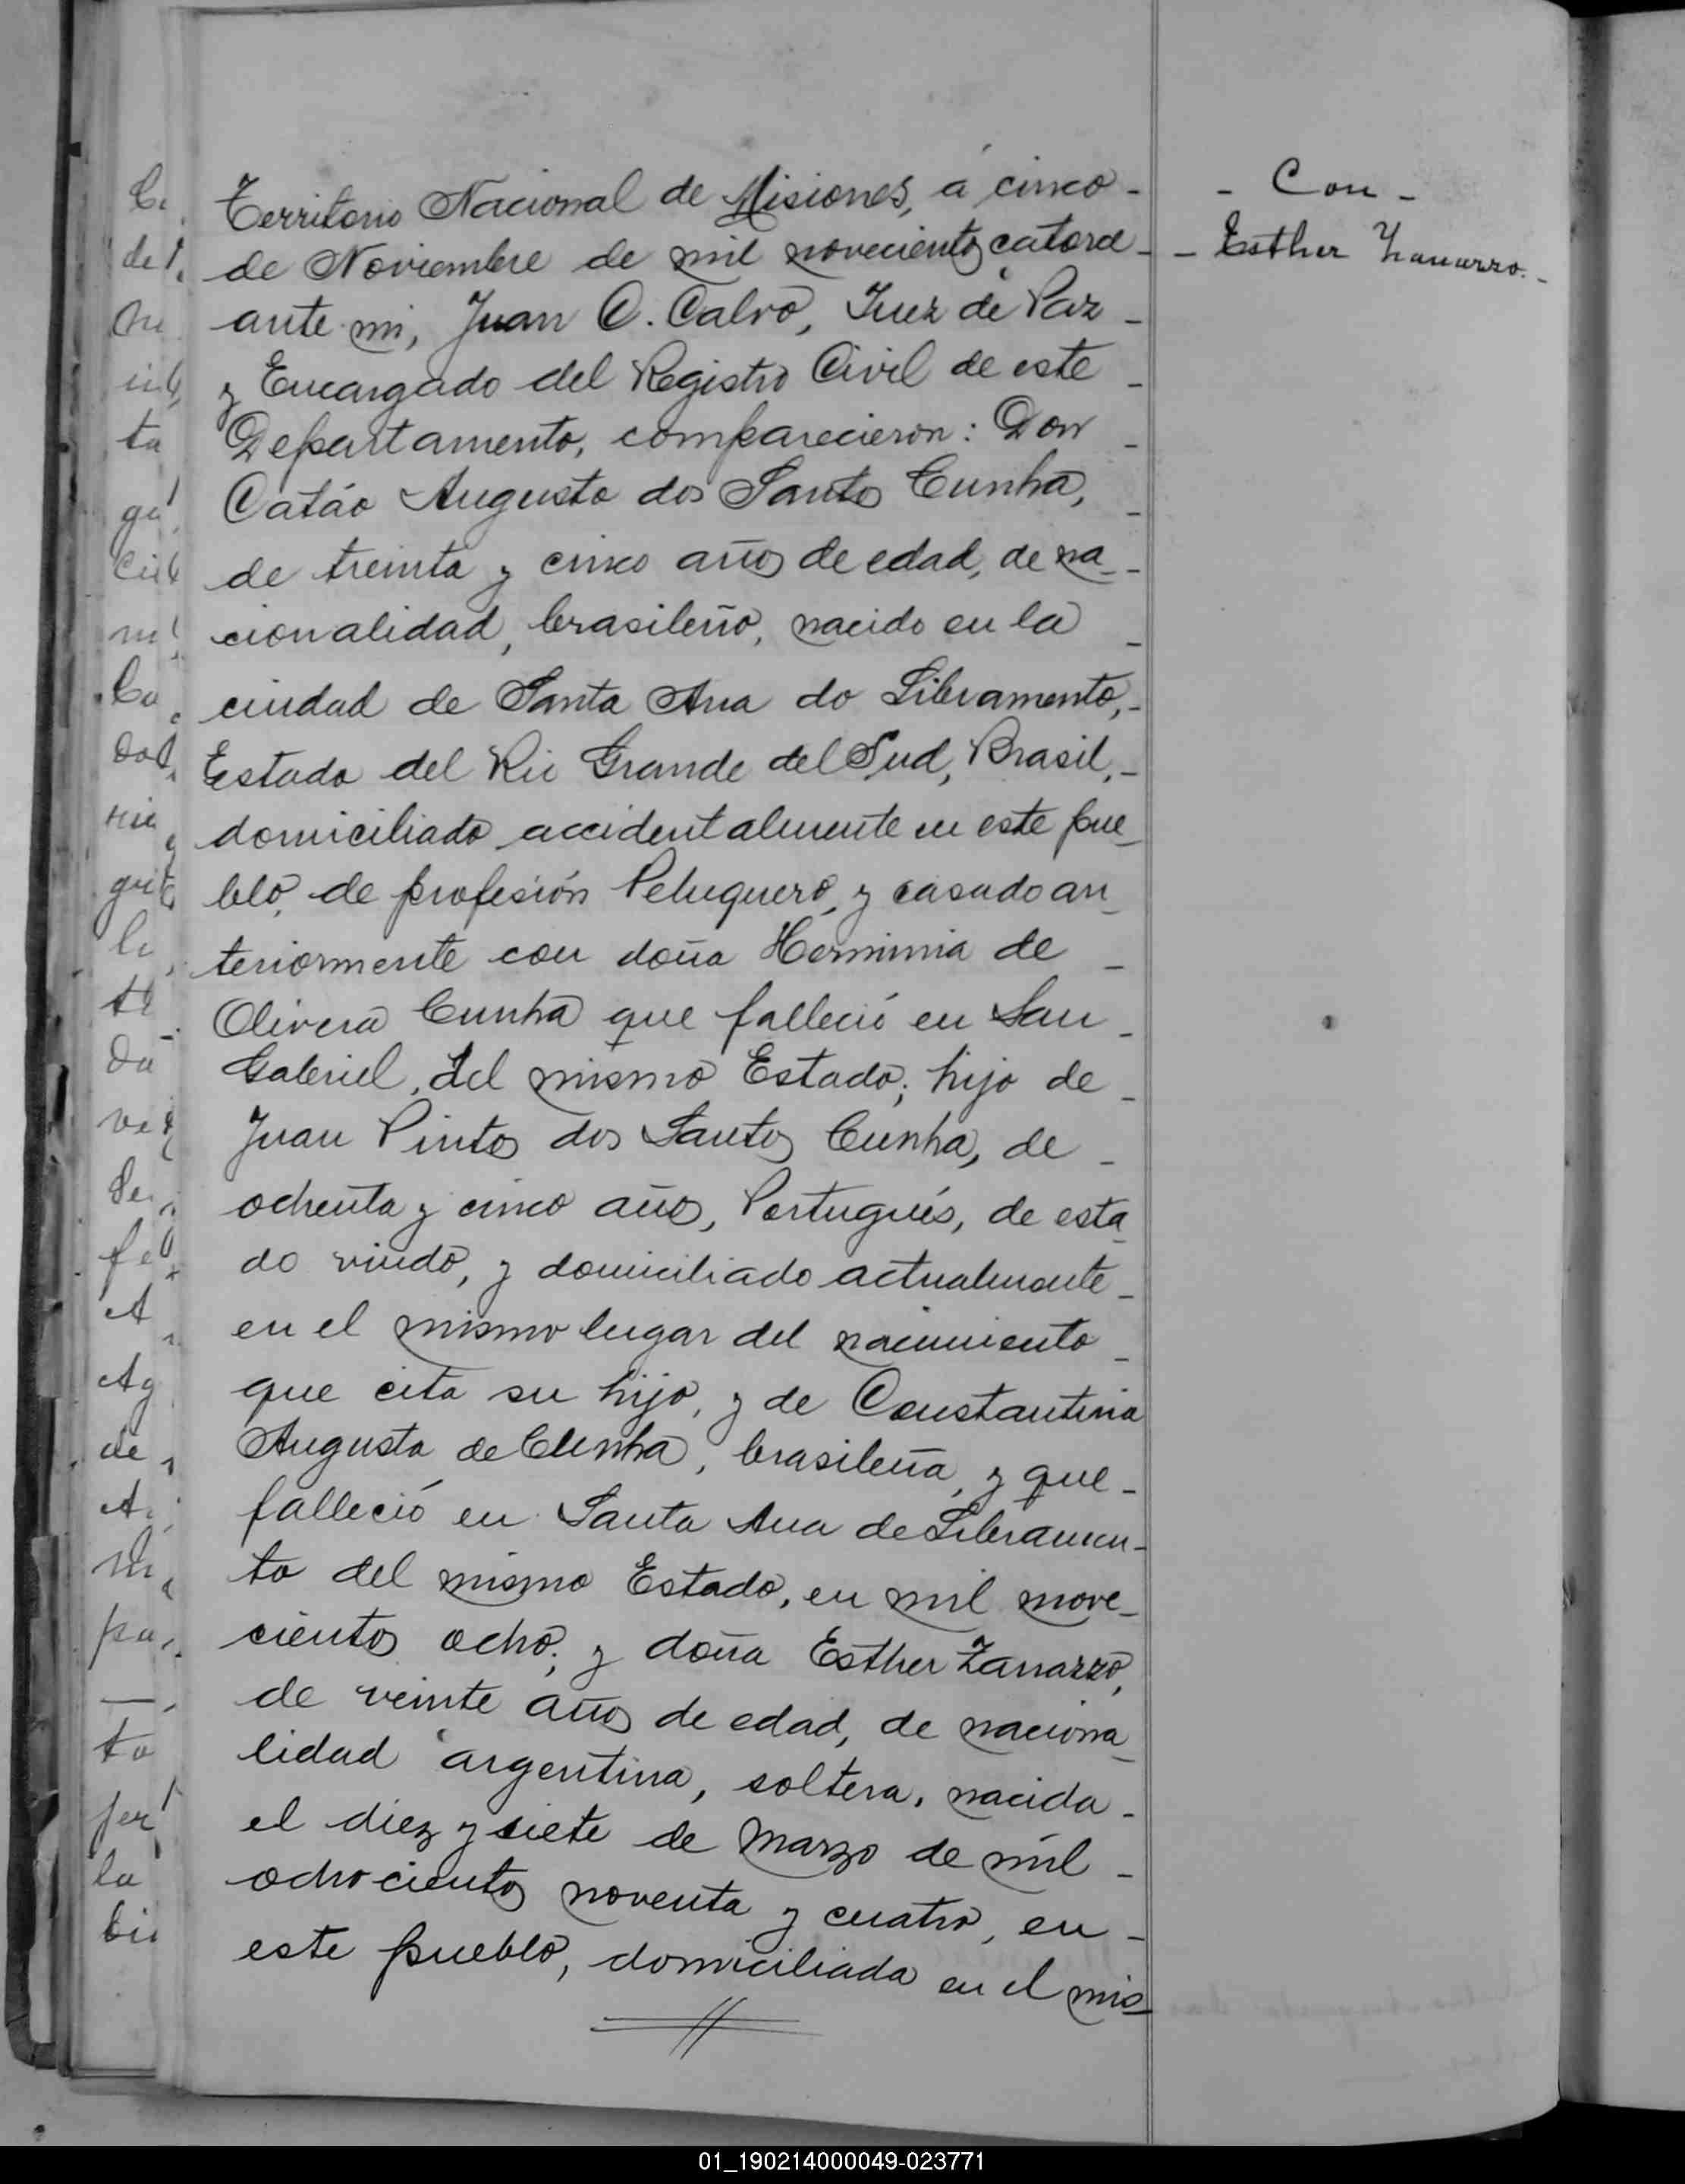 Territorio Nacional de Misiones, á cinco -
de Noviembre de mil novecientos catorce -
ante mi, Juan C. Calvo, Juez de Paz -
y Encargado del Registro Civil de este -
Departamento, comparecieron: Don -
Catáo Augusto dos Santos Cunha, -
de treinta y cinco años de edad, de na-
cionalidad, brasileño, nacido en la -
ciudad de Santa Ana do Libramento, -
Estado del Rio Grande del Sud, Brasil, -
domiciliado accidentalmente en este pue-
blo, de profesión Peluquero, y casado an-
teriormente con doña Herminia de -
Olivera Cunha que falleció en San -
Gabriel, del mismo Estado; hijo de -
Juan Pintos dos Santos Cunha, de -
ochenta y cinco años, Portugués, de esta-
do viudo, y domiciliado actualmente -
en el mismo lugar del nacimiento -
que cita su hijo, y de Constantina
Augusta de Cunha, brasileña, y que -
falleció en Santa Ana de Libramen-
to del mismo Estado, en mil nove-
cientos ocho; y doña Esther Zanazzo,
de veinte años de edad, de naciona-
lidad argentina, soltera, nacida -
el diez y siete de Marzo de mil -
ochocientos noventa y cuatro, en -
este pueblo, domiciliada en el mis-
- Con -
- Esther -
01_190214000049-023771